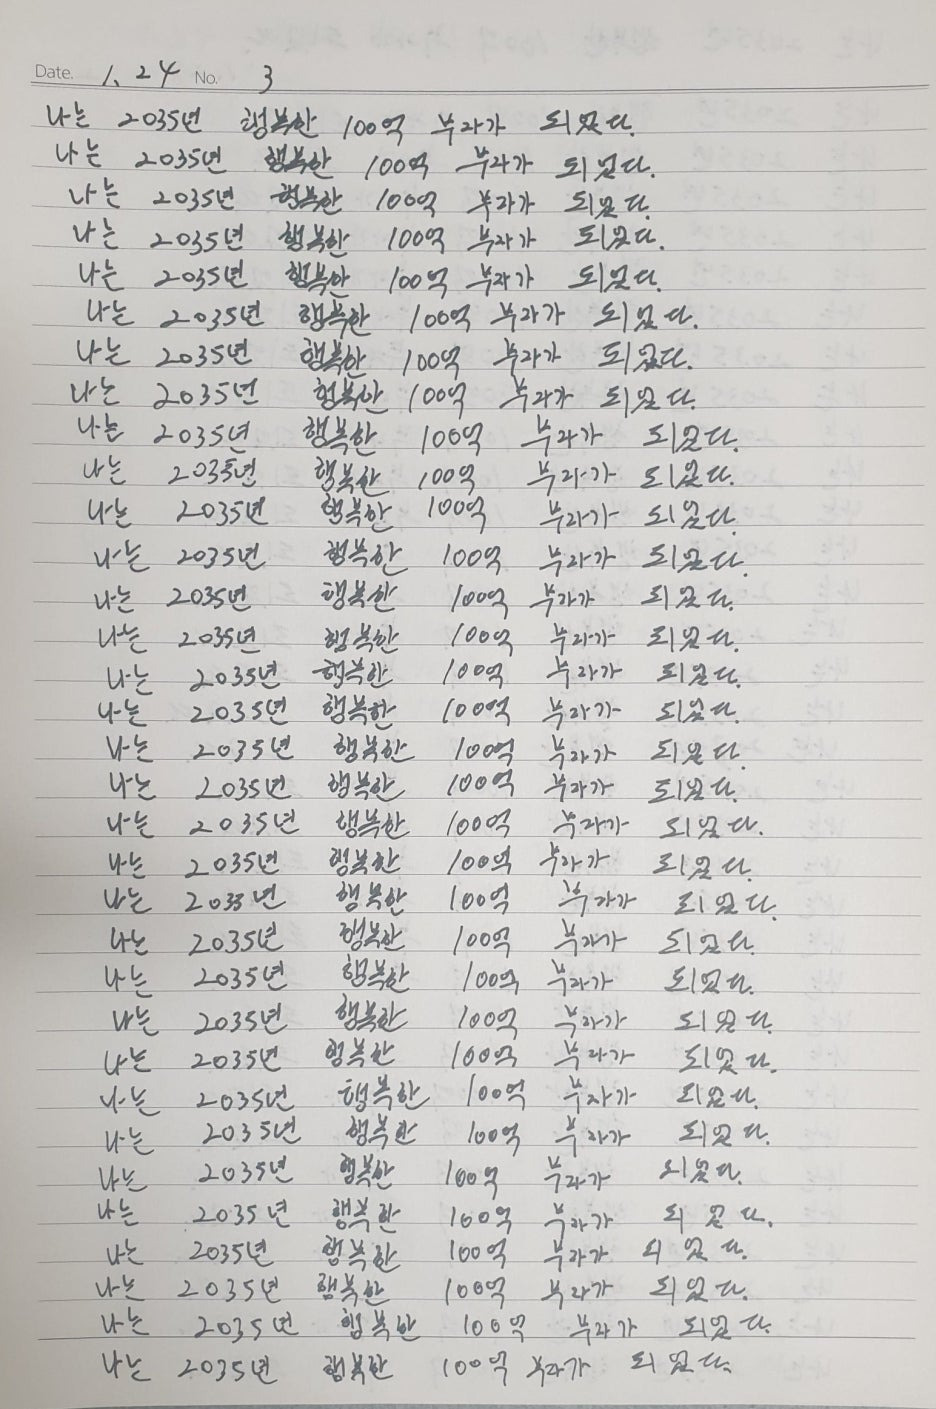 Date. 1. 24 No. 3
나는 2035년 행복한 100억 부자가 되었다.
나는 2035년 행복한 100억 부자가 되었다.
나는 2035년 행복한 100억 부자가 되었다.
나는 2035년 행복한 100억 부자가 되었다.
나는 2035년 행복한 100억 부자가 되었다.
나는 2035년 행복한 100억 부자가 되었다.
나는 2035년 행복한 100억 부자가 되었다.
나는 2035년 행복한 100억 부자가 되었다.
나는 2035년 행복한 100억 부자가 되었다.
나는 2035년 행복한 100억 부자가 되었다.
나는 2035년 행복한 100억 부자가 되었다.
나는 2035년 행복한 100억 부자가 되었다.
나는 2035년 행복한 100억 부자가 되었다.
나는 2035년 행복한 100억 부자가 되었다.
나는 2035년 행복한 100억 부자가 되었다.
나는 2035년 행복한 100억 부자가 되었다.
나는 2035년 행복한 100억 부자가 되었다.
나는 2035년 행복한 100억 부자가 되었다.
나는 2035년 행복한 100억 부자가 되었다.
나는 2035년 행복한 100억 부자가 되었다.
나는 2035년 행복한 100억 부자가 되었다.
나는 2035년 행복한 100억 부자가 되었다.
나는 2035년 행복한 100억 부자가 되었다.
나는 2035년 행복한 100억 부자가 되었다.
나는 2035년 행복한 100억 부자가 되었다.
나는 2035년 행복한 100억 부자가 되었다.
나는 2035년 행복한 100억 부자가 되었다.
나는 2035년 행복한 100억 부자가 되었다.
나는 2035년 행복한 100억 부자가 되었다.
나는 2035년 행복한 100억 부자가 되었다.
나는 2035년 행복한 100억 부자가 되었다.
나는 2035년 행복한 100억 부자가 되었다.
나는 2035년 행복한 100억 부자가 되었다.